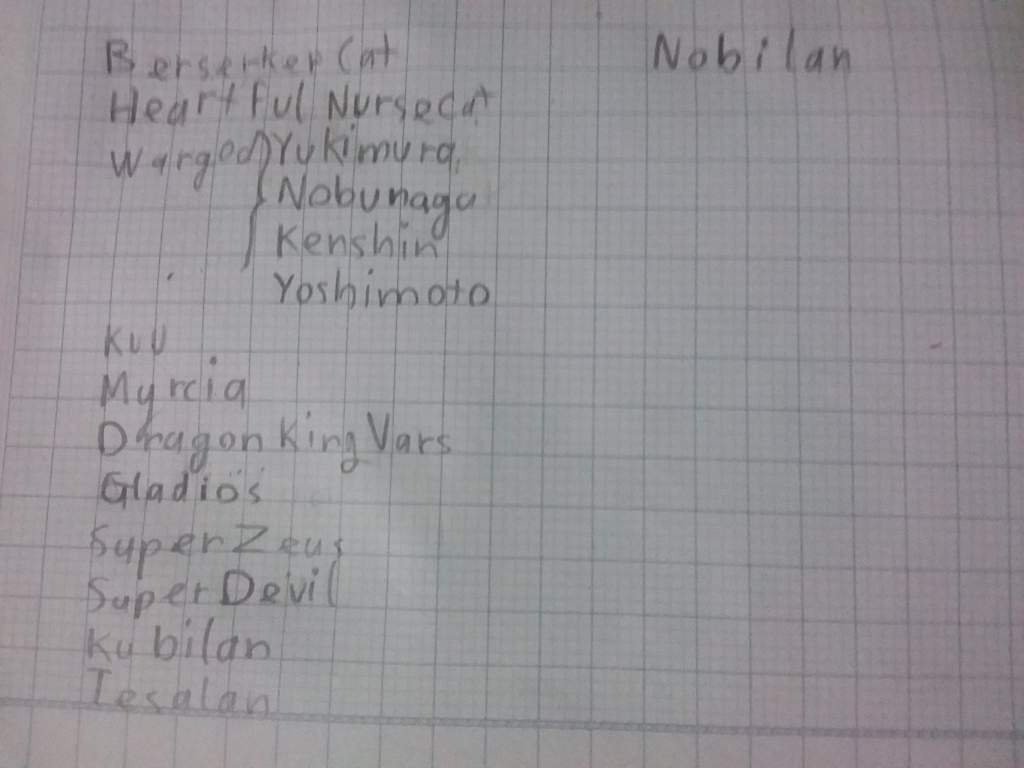 Berserker Cat
Heartful Nursecat
Wargod Yukimura
Nobunaga
Kenshin
Yoshimoto
Kuu
Myrcia
Dragon King Vars
Gladios
Super Zeus
Super Devil
Kubilan
Tesalan
Nobilan